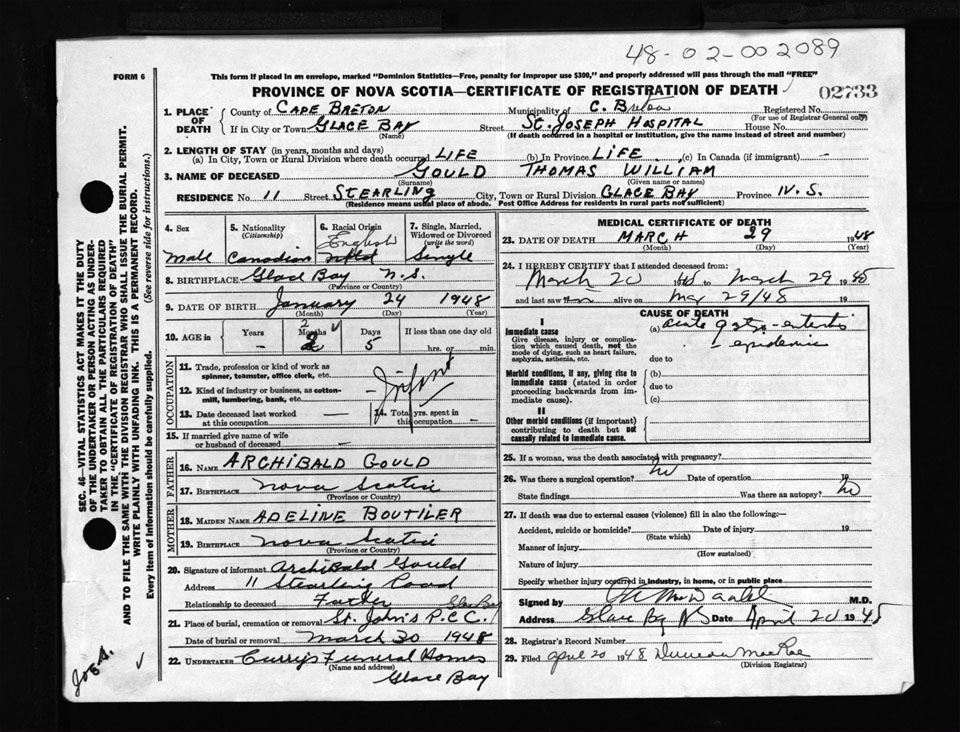 48-02-002089
FORM 6
This form if placed in an envelope, marked "Dominion Statistics—Free, penalty for improper use $300," and properly addressed will pass through the mail "FREE"
PROVINCE OF NOVA SCOTIA—CERTIFICATE OF REGISTRATION OF DEATH
02733
1. PLACE OF DEATH
County of CAPE BRETON Municipality of C. Breton Registered No.
(For use of Registrar General only)
If in City or Town GLACE BAY Street ST. JOSEPH HOSPITAL House No.
(Name) (If death occurred in a hospital or institution, give the name instead of street and number)
2. LENGTH OF STAY (in years, months and days)
(a) In City, Town or Rural Division where death occurred LIFE (b) In Province LIFE (c) In Canada (if immigrant) —
3. NAME OF DECEASED GOULD THOMAS WILLIAM
(Surname) (Given name or names)
RESIDENCE No. 11 Street STEARLING City, Town or Rural Division GLACE BAY Province N.S.
(Residence means usual place of abode. Post Office Address for residents in rural parts not sufficient)
4. Sex 5. Nationality (Citizenship) 6. Racial Origin 7. Single, Married, Widowed or Divorced (write the word)
English
Male Canadian Nfld Single
8. BIRTHPLACE Glace Bay N.S.
(Province or Country)
9. DATE OF BIRTH January 24 1948
(Month) (Day) (Year)
10. AGE in Years Months Days If less than one day old
2
— 2 5 hrs. or min.
OCCUPATION
11. Trade, profession or kind of work as spinner, teamster, office clerk, etc.
12. Kind of industry or business, as cotton-mill, lumbering, bank, etc.
Infant
13. Date deceased last worked at this occupation — 14. Total yrs. spent in this occupation —
15. If married give name of wife or husband of deceased —
FATHER
16. NAME ARCHIBALD GOULD
17. BIRTHPLACE Nova Scotia
(Province or Country)
MOTHER
18. MAIDEN NAME ADELINE BOUTILER
19. BIRTHPLACE Nova Scotia
(Province or Country)
20. Signature of informant Archibald Gould
Address 11 Stearling Road
Relationship to deceased Father Glace Bay
21. Place of burial, cremation or removal St. John's R.C.C.
Date of burial or removal March 30 1948
22. UNDERTAKER Curry's Funeral Homes
(Name and address)
Glace Bay
MEDICAL CERTIFICATE OF DEATH
23. DATE OF DEATH MARCH 29 1948
(Month) (Day) (Year)
24. I HEREBY CERTIFY that I attended deceased from:
March 20 19 to March 29 19
and last saw alive on Mar 29/48 19
CAUSE OF DEATH
I
Immediate cause
Give disease, injury or complication which caused death, not the mode of dying, such as heart failure, asphyxia, asthenia, etc.
(a) acute gastro-enteritis
- epidemic
due to
Morbid conditions, if any, giving rise to immediate cause (stated in order proceeding backwards from immediate cause).
(b)
due to
(c)
II
Other morbid conditions (if important) contributing to death but not causally related to immediate cause.
25. If a woman, was the death associated with pregnancy?
26. Was there a surgical operation? No Date of operation 19
State findings Was there an autopsy? No
27. If death was due to external causes (violence) fill in also the following:—
Accident, suicide or homicide? Date of injury 19
(State which)
Manner of injury
(How sustained)
Nature of injury
Specify whether injury occurred in industry, in home, or in public place
Signed by M.D.
Address Glace Bay NS Date April 20 1948
28. Registrar's Record Number
29. Filed April 20 1948 Duncan MacRae
(Division Registrar)
SEC. 46—VITAL STATISTICS ACT MAKES IT THE DUTY
OF THE UNDERTAKER OR PERSON ACTING AS UNDER-
TAKER TO OBTAIN ALL THE PARTICULARS REQUIRED
IN THE "CERTIFICATE OF REGISTRATION OF DEATH"
AND TO FILE THE SAME WITH THE DIVISION REGISTRAR WHO SHALL ISSUE THE BURIAL PERMIT.
WRITE PLAINLY WITH UNFADING INK. THIS IS A PERMANENT RECORD.
Every item of information should be carefully supplied. (See reverse side for instructions.)